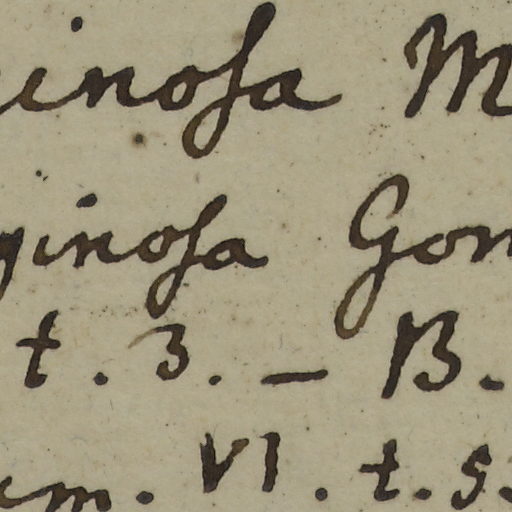 inosa M
ginosa Gon
t. 3. – B.
um. VI. t. 5.